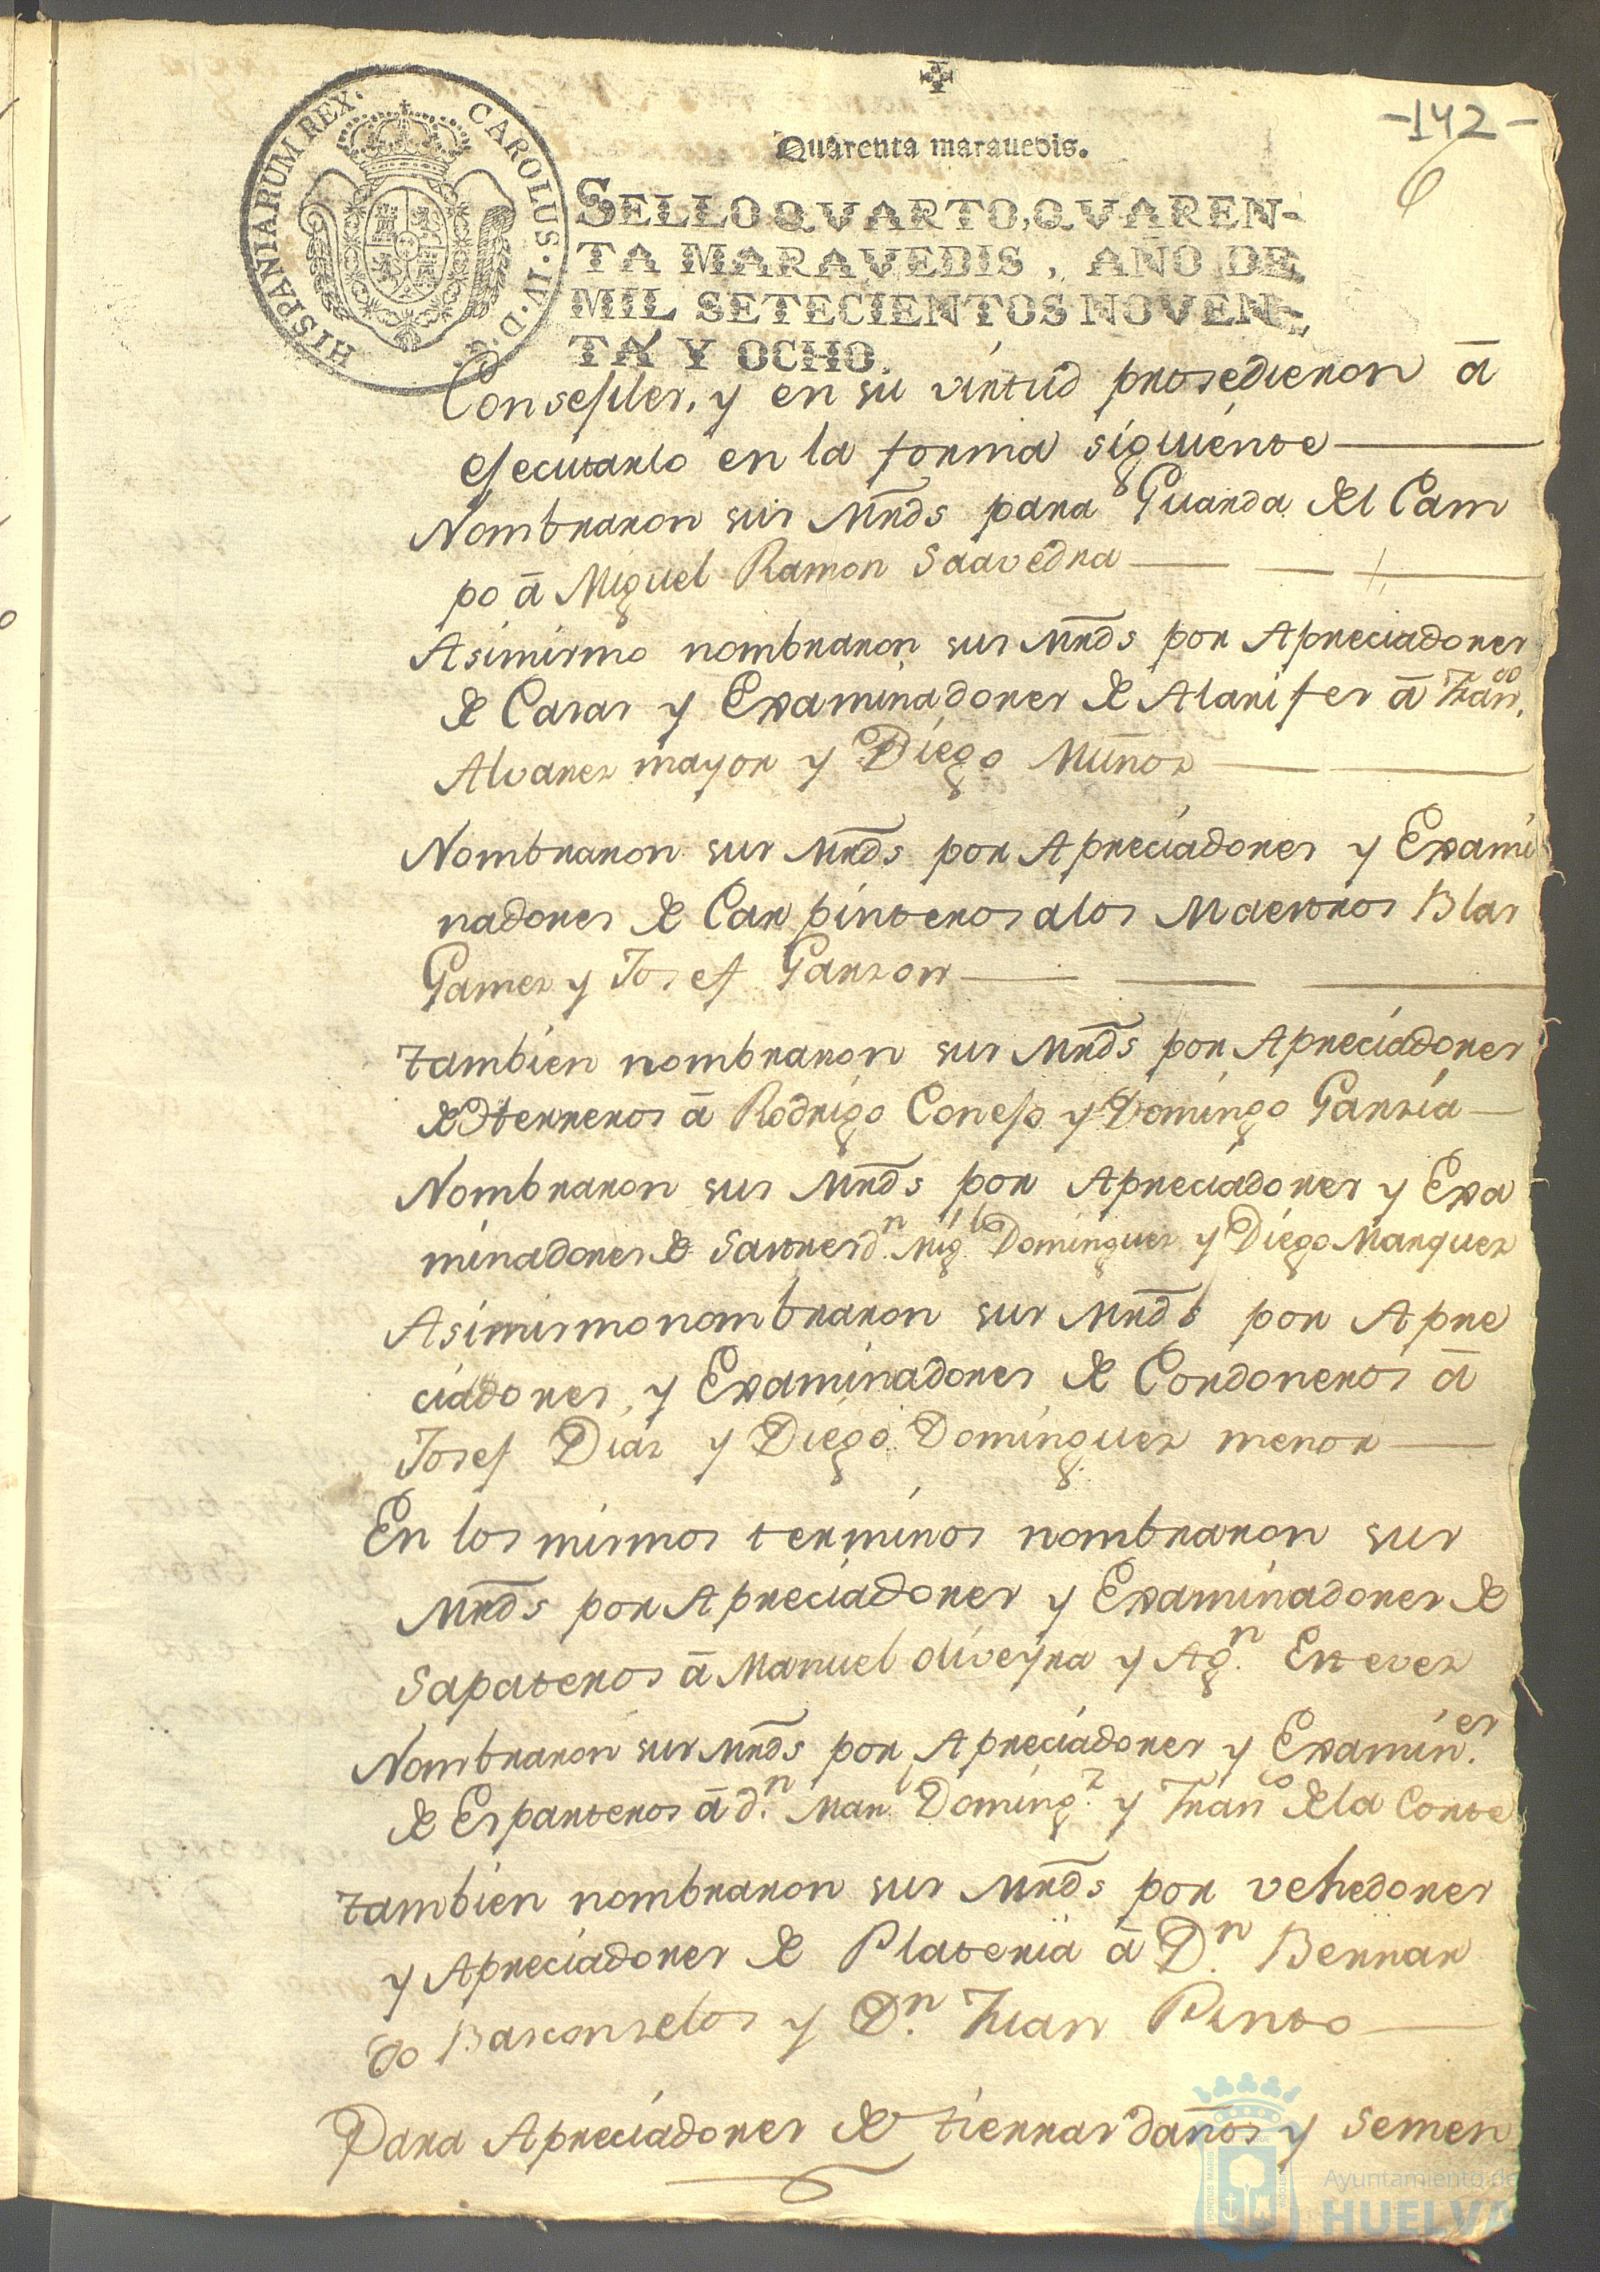 -142-
6
Quarenta maravedis.
HISPANIARUM REX. CAROLUS. IV. D. G.
SELLO QVARTO, QVAREN-
TA MARAVEDIS, AÑO DE
MIL SETECIENTOS NOVEN-
TA Y OCHO.
y en su virtud prosedieron â
ejecutarlo en la forma siguiente
Nombraron sus Mrds para Guarda del Cam
po â Miguel Ramon Saavedra
Asimismo nombraron sus Mrds por Apreciadores
de Casas y Examinadores de Alarifes â Franco.
Alvares mayor y Diego Muños
Nombraron sus Mrds por Apreciadores y Exami
nadores de Carpinteros alos Maestros Blas
Gamez y Josef Garzon
tambien nombraron sus Mrds por Apreciadores
de Herreros â Rodrigo Conejo y Domingo Garzia
Nombraron sus Mrds por Apreciadores y Exa
minadores de Sastres dn. Migl Dominguez y Diego Marquez
Asimismo nombraron sus Mrds por Apre
ciadores, y Examinadores de Cordoneros â
Josef Diaz y Diego Dominguez menor
En los mismos terminos nombraron sus
Mrds por Apreciadores y Examinadores de
Sapateros â Manuel Oliveyra y Agn. Estevez
Nombraron sus Mrds por Apreciadores y Examin.es
de Esparteros â dn. Manl Doming.z y Franco dela Corte
tambien nombraron sus Mrds por vehedores
y Apreciadores de Plateria â Dn. Bernar
do Basconzelos y Dn. Juan Pinto
Para Apreciadores de tierras daños y Semen
Ayuntamiento de
HUELVA